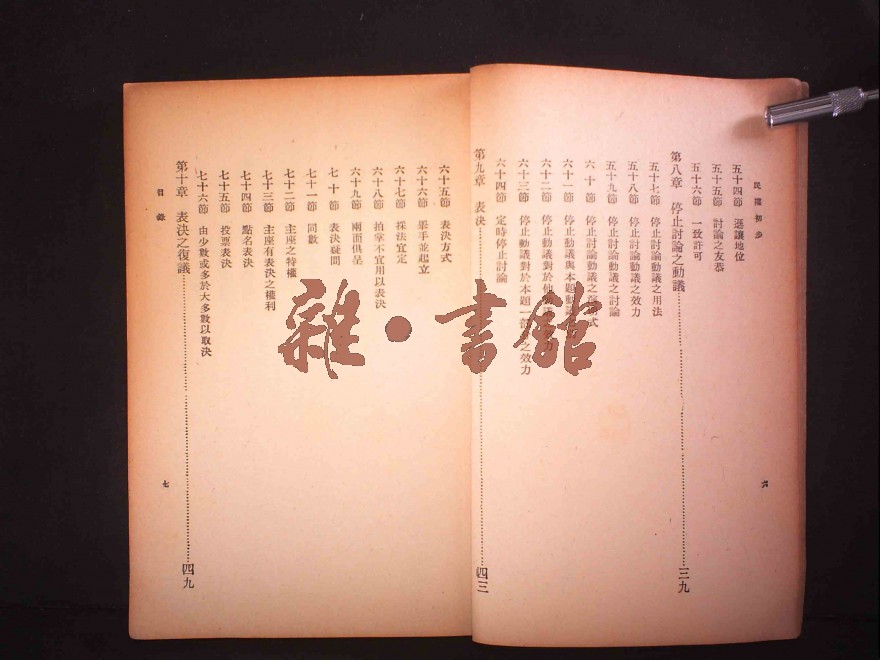 民權初步
五十四節 遜讓地位
五十五節 討論之友恭
五十六節 一致許可
第八章 停止討論之動議 三九
五十七節 停止討論動議之用法
五十八節 停止討論動議之效力
五十九節 停止討論動議之討論
六十節 停止討論動議之 式
六十一節 停止動議與本題動
六十二節 停止動議對於他 力
六十三節 停止動議對於本題一 之效力
六十四節 定時停止討論
第九章 表決 四三
六
六十五節 表決方式
六十六節 舉手並起立
六十七節 採法宜定
六十八節 拍掌不宜用以表決
六十九節 兩面俱呈
七十節 表決疑問
七十一節 同數
七十二節 主座之特權
七十三節 主座有表決之權利
七十四節 點名表決
七十五節 投票表決
七十六節 由少數或多於大多數以取決
第十章 表決之復議 四九
目錄
七
雜·書館